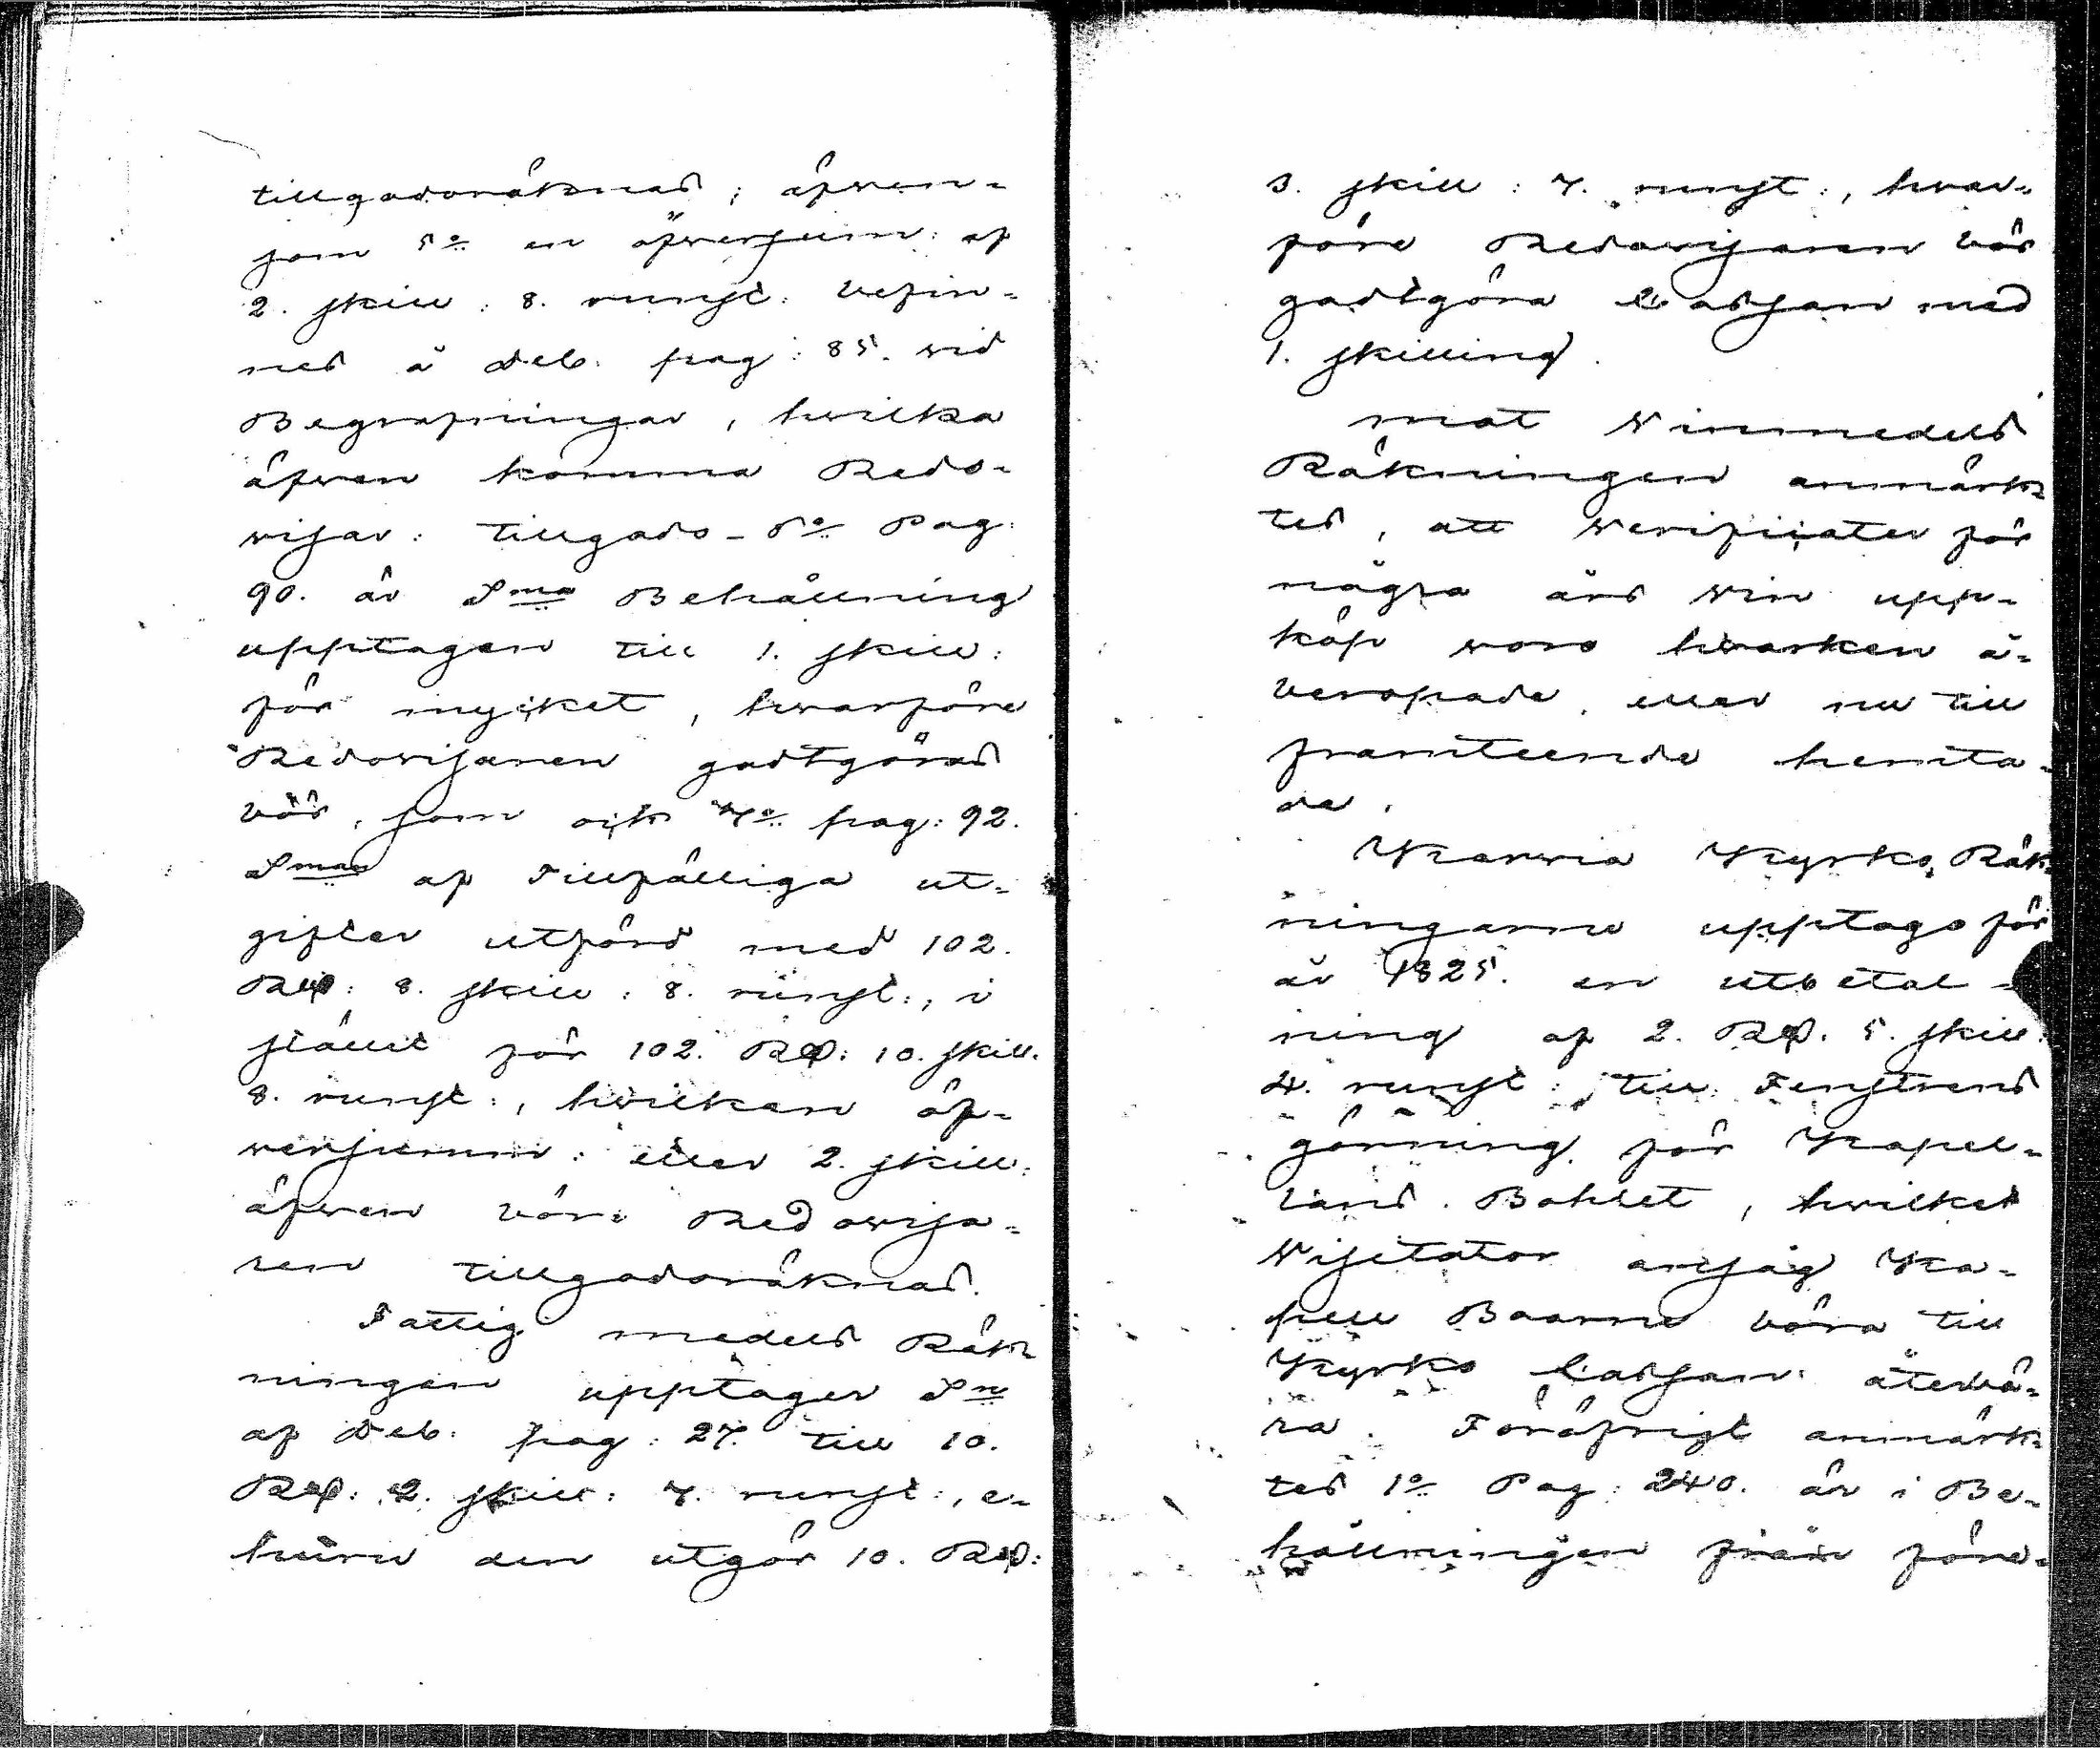 tillgodoräknas; äfwen-
som 5o en öfwersum: af
2. skill: 8. runst: befin-
nes å Deb. pag: 85. wid
Begrafningar, hwilka
äfwen komma Redo-
wisar: tillgodo - 6o Pag:
90. är Sma Behållning
upptagen till 1. skill:
för mycket, hwarföre
Redowisaren godtgöras
bör, som ock 7o pag: 92.
Sman af Tillfälliga ut-
gifter utförd med 102.
Rbl: 8. skill: 8. runst:, i
ställt för 102. Rbl: 10. skill.
8. runst:, hwilken öf-
wersumm: eller 2. skill:
äfwen bör Redowisa-
ren tillgodoräknas.
Fattig medels Räk-
ningen upptager Sn
af Deb. pag: 27. till 10.
Rbl: 2. skill: 7. runst:, e-
huru den utgör 10. Rbl:
3. skill: 7. runst:, hwar-
före Redowisaren bör
godtgöra Cassan med
1. skilling.
mot Winmedels
Räkningen anmärk-
tes, att Verificater för
några års Win upp-
köp woro hwarken å-
beropade, eller nu till
framteende hemta-
de.
Karvia Kyrko Räk-
ningarne upptogo för
år 1825. en utbetal-
ning af 2. Rbl. 5. skill:
4. runst: till Fenstrens
görning för Kapel-
lans Bohlet, hwilket
Visitator ansåg Ka-
pell Boarne böra till
Kyrko Cassan återbä-
ra. Föröfrigt anmärk-
tes 1o Pag: 240. är i Be-
hållningen från före-